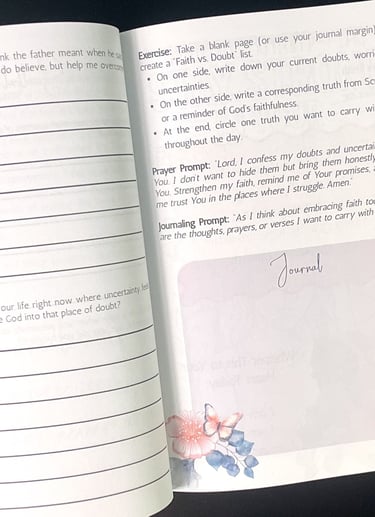 nk the father meant when he
do believe, but help me
our life right now, where uncertainty
God into that place of doubt?
Exercise: Take a blank page (or use your journal margin)
create a "Faith vs. Doubt" list.
• On one side, write down your current doubts,
uncertainties.
• On the other side, write a corresponding truth from
or a reminder of God's faithfulness.
• At the end, circle one truth you want to carry
throughout the day.
Prayer Prompt: "Lord, I confess my doubts and
You. I don't want to hide them but bring them honestly
You. Strengthen my faith, remind me of Your promises,
me trust You in the places where I struggle. Amen."
Journaling Prompt: "As I think about embracing faith
are the thoughts, prayers, or verses I want to carry with
Journal